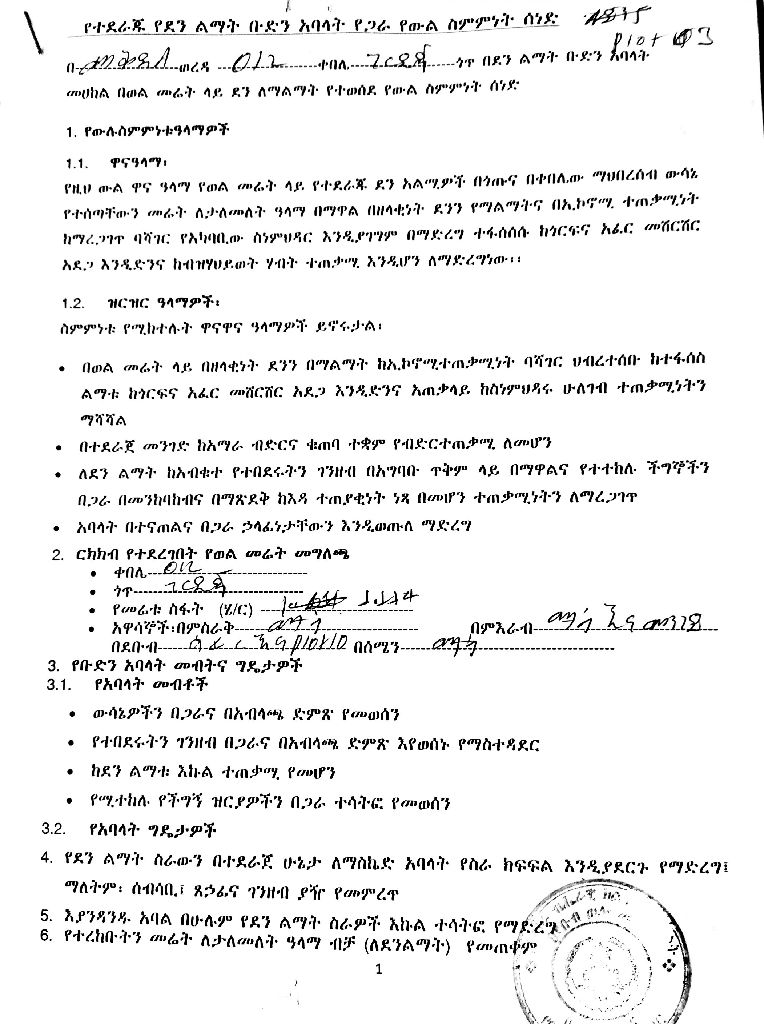 የተደራጁ የደን ልማት ቡድን አባላት የጋራ የውል ስምምነት ሰነድ
plot 03
በ ወረዳ 012 ቀበሌ ጎጥ በደን ልማት ቡድን አባላት
መሀከል በወል መሬት ላይ ደን ለማልማት የተወሰደ የውል ስምምነት ሰነድ
1. የውሉስምምነቱዓላማዎች
1.1. ዋናዓላማ፡
የዚህ ውል ዋና ዓላማ የወል መሬት ላይ የተደራጁ ደን አልሚዎች በጎጡና በቀበሌው ማህበረሰብ ውሳኔ
የተሰጣቸውን መሬት ለታለመለት ዓላማ በማዋል በዘላቂነት ደንን የማልማትና በኢኮኖሚ ተጠቃሚነት
ከማረጋገጥ ባሻገር የአካባቢው ስነምህዳር እንዲያገግም በማድረግ ተፋሰሰሱ ከጎርፍና አፈር መሸርሸር
አደጋ እንዲድንና ከብዝሃህይወት ሃብት ተጠቃሚ እንዲሆን ለማድረግነው፡፡
1.2. ዝርዝር ዓላማዎች፡
ስምምነቱ የሚከተሉት ዋናዋና ዓላማዎች ይኖሩታል፡
• በወል መሬት ላይ በዘላቂነት ደንን በማልማት ከኢኮኖሚተጠቃሚነት ባሻገር ህብረተሰቡ ከተፋሰስ
ልማቱ ከጎርፍና አፈር መሸርሸር አደጋ እንዲድንና አጠቃላይ ከስነምህዳሩ ሁለገብ ተጠቃሚነትን
ማሻሻል
• በተደራጀ መንገድ ከአማራ ብድርና ቁጠባ ተቋም የብድርተጠቃሚ ለመሆን
• ለደን ልማት ከአብቁተ የተበደሩትን ገንዘብ በአግባቡ ጥቅም ላይ በማዋልና የተተከሉ ችግኞችን
በጋራ በመንከባከብና በማጽደቅ ከእዳ ተጠያቂነት ነጻ በመሆን ተጠቃሚነትን ለማረጋገጥ
• አባላት በተናጠልና በጋራ ኃላፊነታቸውን እንዲወጡለ ማድረግ
2. ርክክብ የተደረገበት የወል መሬት መግለጫ
• ቀበሌ 012
• ጎጥ
• የመሬቱ ስፋት (ሄ/ር)
• አዋሳኞች፡በምስራቅ በምእራብ
በደቡብ በሰሜን
3. የቡድን አባላት መብትና ግዴታዎች
3.1. የአባላት መብቶች
• ውሳኔዎችን በጋራና በአብላጫ ድምጽ የመወሰን
• የተበደሩትን ገንዘብ በጋራና በአብላጫ ድምጽ እየወሰኑ የማስተዳደር
• ከደን ልማቱ እኩል ተጠቃሚ የመሆን
• የሚተከሉ የችግኝ ዝርያዎችን በጋራ ተሳትፎ የመወሰን
3.2. የአባላት ግዴታዎች
4. የደን ልማት ስራውን በተደራጀ ሁኔታ ለማስኬድ አባላት የስራ ክፍፍል እንዲያደርጉ የማድረግ፤
ማለትም፡ ሰብሳቢ፣ ጸኃፊና ገንዘብ ያዥ የመምረጥ
5. እያንዳንዱ አባል በሁሉም የደን ልማት ስራዎች እኩል ተሳትፎ የማድረግ
6. የተረከቡትን መሬት ለታለመለት ዓላማ ብቻ (ለደንልማት) የመጠቀም
1